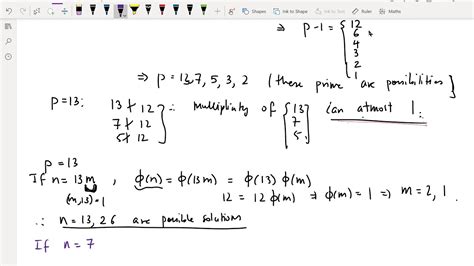 Share
Draw
View
Maths
Shapes
Ink to Shape
Ink to Text
Maths
⇒ p-1 = { 12
6
4
3
2
1
⇒ p = 13, 7, 5, 3, 2 (these prime are possibilities)
p=13: 13 ∤ 12
7 ∤ 12
5 ∤ 12 } ∴ multiplicity of { 13
7
5 } can atmost 1.
p = 13
If n = 13m , ϕ(n) = ϕ(13m) = ϕ(13) ϕ(m)
(m,13)=1 12 = 12 ϕ(m) ⇒ ϕ(m) = 1 ⇒ m = 2, 1.
∴ n = 13, 26 are possible solutions
If n = 7